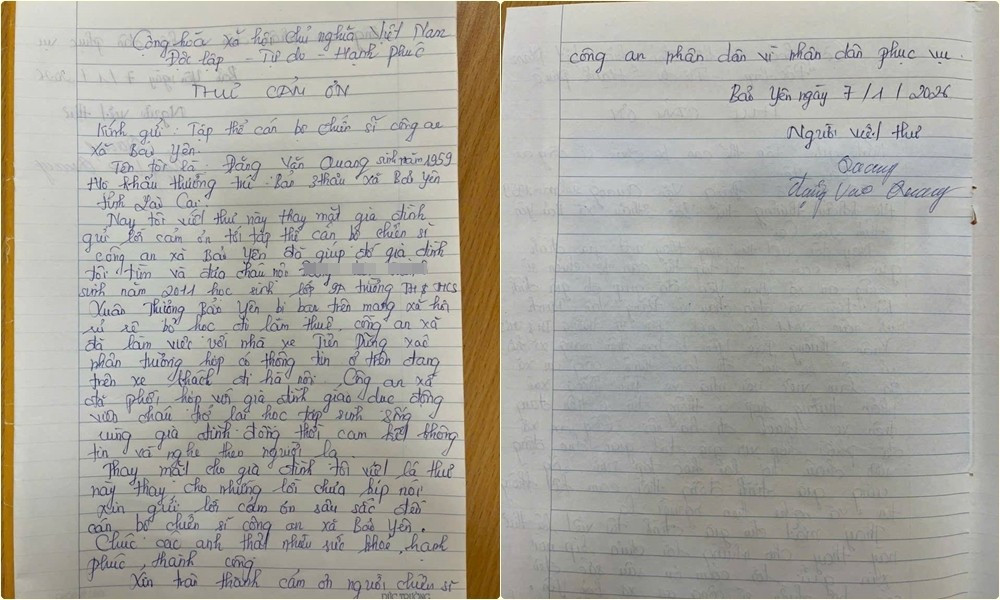 Cộng hoà xã hội chủ nghĩa Việt Nam
Độc lập - Tự do - Hạnh phúc
THƯ CẢM ƠN
Kính gửi: Tập thể cán bộ chiến sĩ công an
xã Bảo Yên.
Tên tôi là: Đặng Văn Quang sinh năm 1959
Hộ khẩu thường trú: Bản 3 thâu xã Bảo Yên
tỉnh Lào Cai.
Nay tôi viết thư này thay mặt gia đình
gửi lời cảm ơn tới tập thể cán bộ chiến sĩ
công an xã Bảo Yên đã giúp đỡ gia đình
tôi tìm và đưa cháu nội
sinh năm 2011 học sinh lớp 9A trường TH & THCS
Xuân Thượng Bảo Yên bị bạn trên mạng xã hội
rủ rê bỏ học đi làm thuê, công an xã
đã làm việc với nhà xe Tiến Dũng xác
nhận trường hợp có thông tin ở trên đang
trên xe khách đi hà nội. Công an xã
đã phối hợp với gia đình giáo dục động
viên cháu trở lại học tập sinh sống
cùng gia đình đồng thời cam kết không
tin và nghe theo người lạ.
Thay mặt cho gia đình tôi viết lá thư
này thay cho những lời chưa kịp nói
xin gửi lời cảm ơn sâu sắc đến
cán bộ chiến sĩ công an xã Bảo Yên.
Chúc các anh thật nhiều sức khoẻ, hạnh
phúc, thành công
Xin trân thành cảm ơn người chiến sĩ
công an nhân dân vì nhân dân phục vụ.
Bảo Yên ngày 7/1/2026
Người viết thư
Quang
Đặng Văn Quang